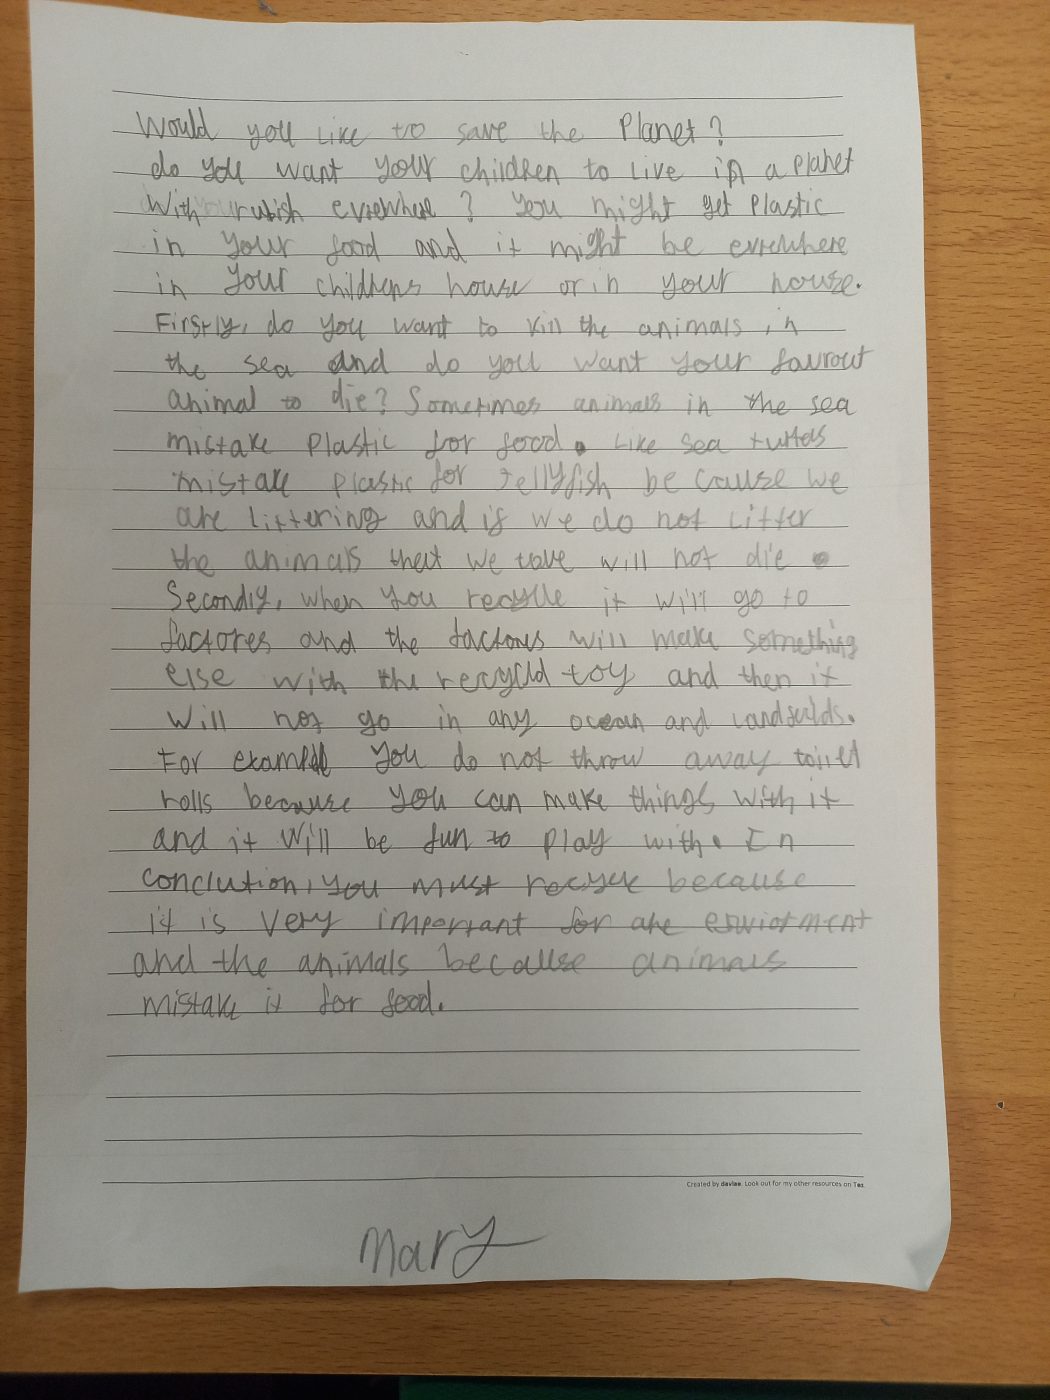 Would you like to save the Planet?
do you want your children to live in a planet
with rubish evrewhere? You might get Plastic
in your food and it might be evrewhere
in your childrens house or in your house.
Firstly, do you want to kill the animals in
the sea and do you want your favrout
animal to die? Sometimes animals in the sea
mistake Plastic for food. Like sea turtles
mistake plastic for Jellyfish be cause we
are littering and if we do not litter
the animals that we will not die.
Secondly, when you recycle it will go to
factores and the factores will make something
else with the recycld toy and then it
will not go in any ocean and
For example you do not throw away toilet
rolls because you can make things with it
and it will be fun to play with. In
conclution, you must recycle because
it is very important for are
and the animals because animals
mistake it for food.
Created by davlae. Look out for my other resources on Tes.
Mary